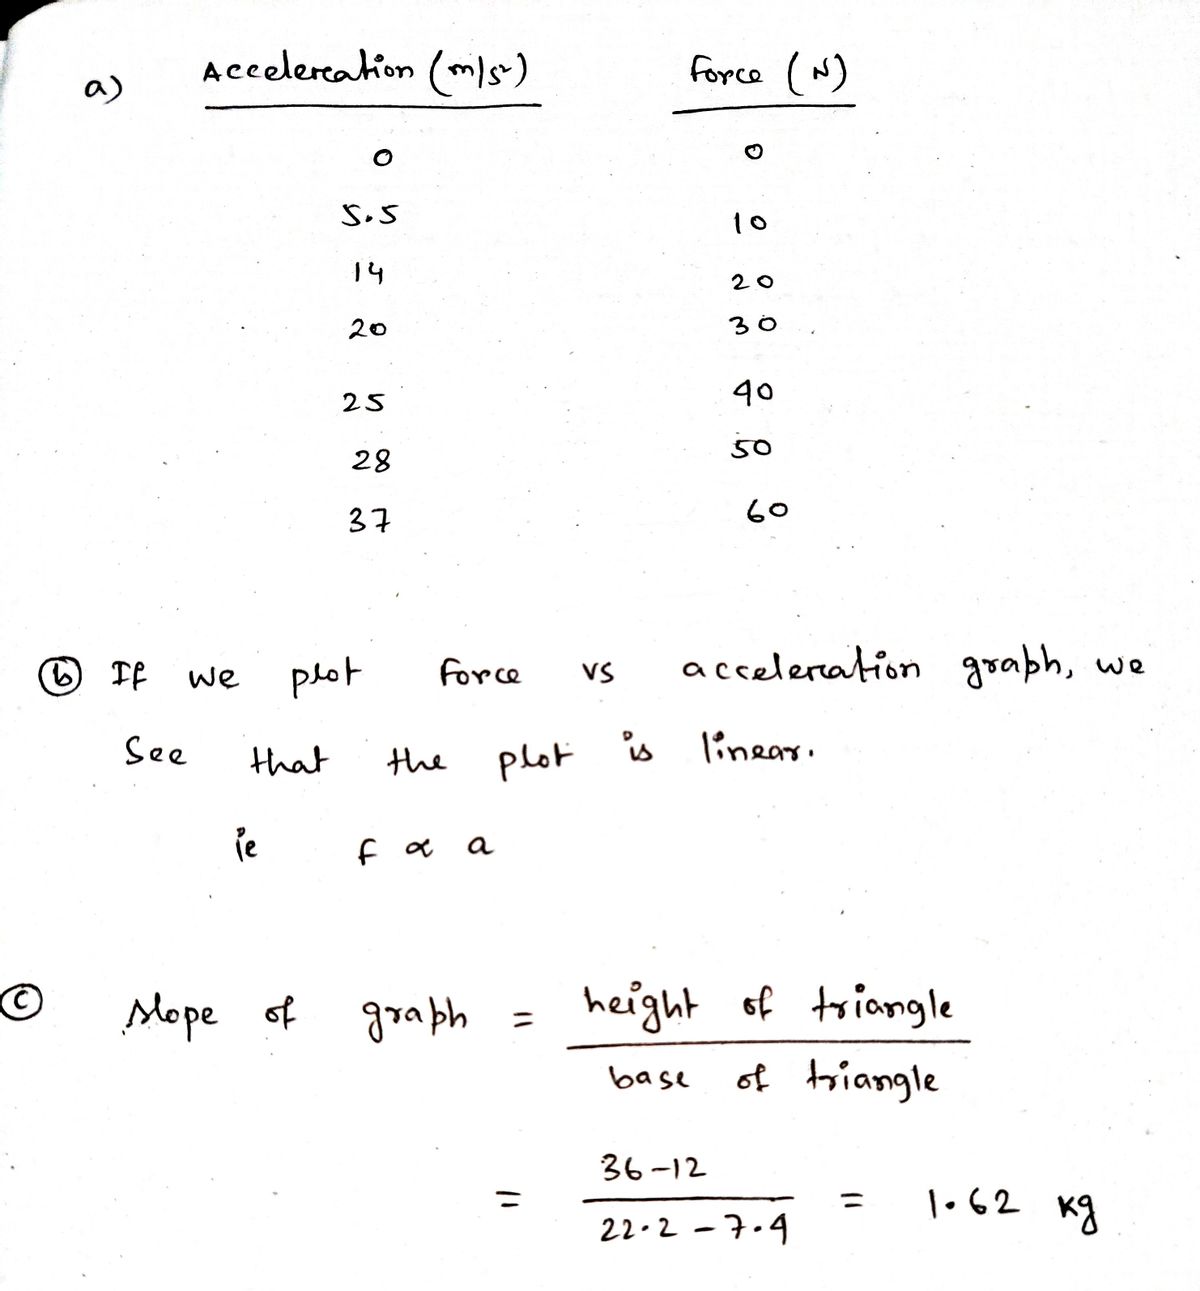 a) Acceleration (m/s²) Force (N)
0 0
5.5 10
14 20
20 30
25 40
28 50
37 60
(b) If we plot force vs acceleration graph, we
See that the plot is linear.
ie f ∝ a
(c) slope of graph = height of triangle
base of triangle
= 36-12
22.2 - 7.4 = 1.62 kg